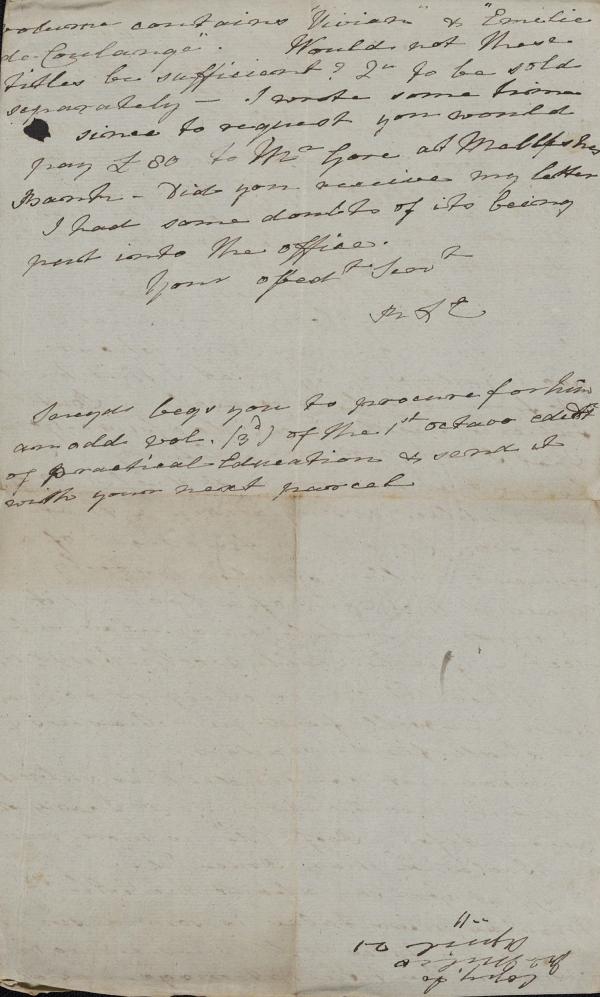 volume contains "Vivian" & "Emelie
de Coulange". Would not these
titles be sufficient? 2ⁿ to be sold
separately — I wrote some time
since to request you would
pay £80 to Mʳ Gore at
Bank – Did you receive my letter
I had some doubts of its being
put into the office.
Your obedᵗ Servᵗ
R L E
Sneyd begs you to procure for him
an odd vol. (3ᵈ) of the 1ˢᵗ octavo editⁿ
of Practical Education & send it
with your next parcel
Copy to
Miles
April 21
–11